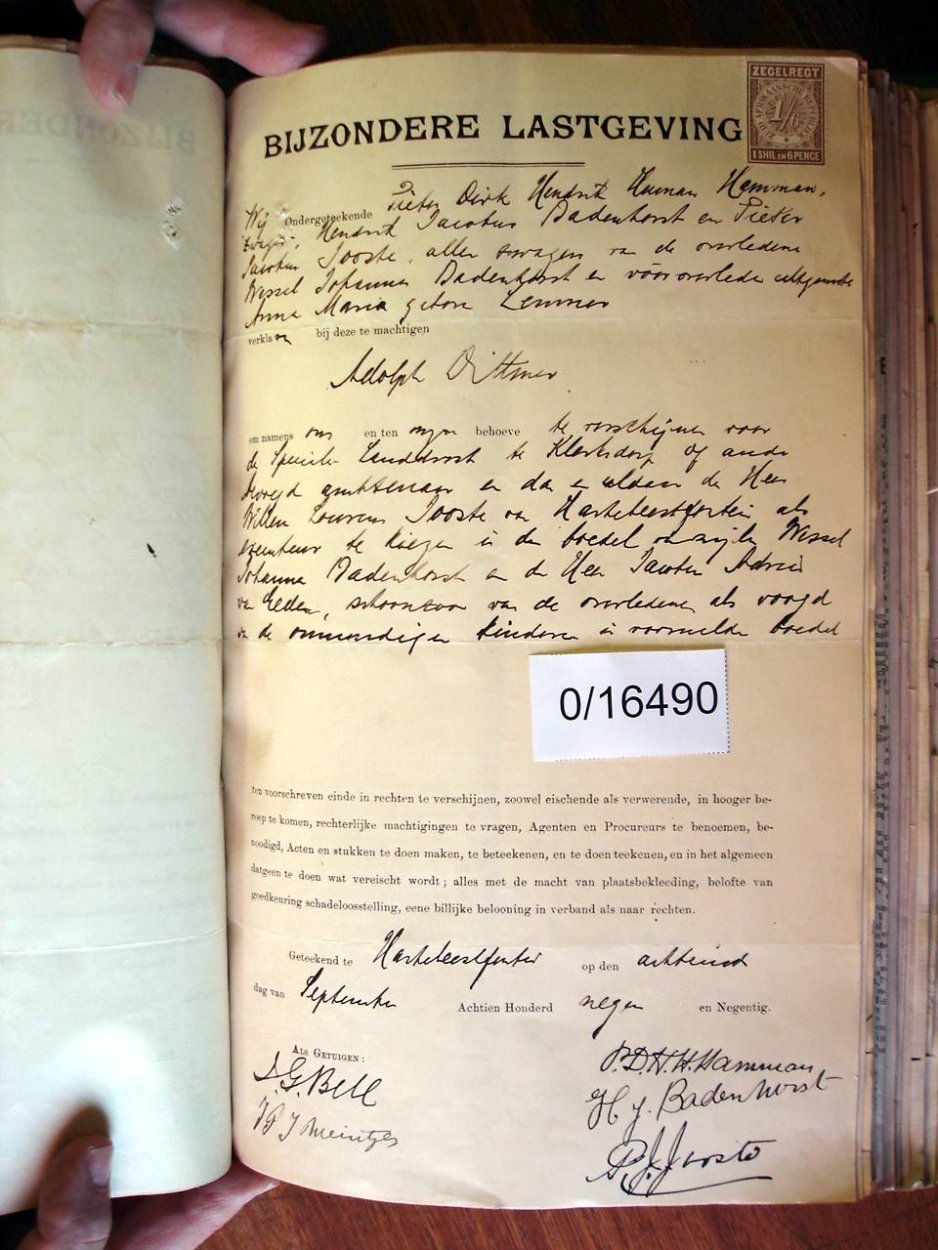 BIJZONDERE LASTGEVING
ZEGELREGT
1/6
1 SHIL EN 6 PENCE
Wij Ondergeteekende Pieter Dirk Hendrik Human Hamman,
zwager, Hendrik Jacobus Badenhorst en Pieter
Jacobus Jooste, allen zwagers van de overledene
Wessel Johannes Badenhorst en vooroverleden echtgenoote
Anna Maria geboren Lemmer
verklaren bij deze te machtigen
Adolph Dittmer
om namens ons en ten onzen behoeve te verschijnen voor
de Speciale Landdrost te Klerksdorp of ander
bevoegd ambtenaar en daar en aldaar de Heer
Willem Lourens Jooste van Hartebeestfontein als
executeur te kiezen in den boedel van wijlen Wessel
Johannes Badenhorst en de Heer Jacobus Adriaan
van Eeden, schoonzoon van de overledene als voogd
van de onmondigen kinderen in voormelde boedel
0/16490
ten voorschreven einde in rechten te verschijnen, zoowel eischende als verwerende, in hooger be-
roep te komen, rechterlijke machtigingen te vragen, Agenten en Procureurs te benoemen, be-
noodigd, Acten en stukken te doen maken, te beteekenen, en te doen teekenen, en in het algemeen
datgeen te doen wat vereischt wordt; alles met de macht van plaatsbekleeding, belofte van
goedkeuring schadeloosstelling, eene billijke belooning in verband als naar rechten.
Geteekend te Hartebeestfontein op den achttiend
dag van September Achtien Honderd negen en Negentig.
ALS GETUIGEN:
P.D.H.H. Hamman
J.G. Bell
H J. Badenhorst
Meintjes
P.J. Jooste